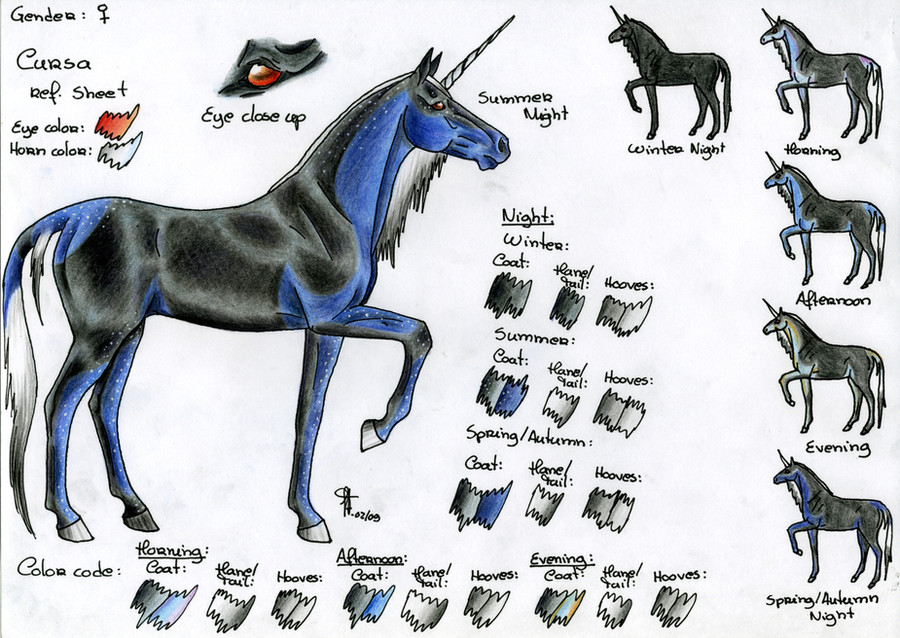 Gender: ♀
Cursa
Ref. Sheet
Eye color:
Horn color:
Eye close up
Summer
Night
Winter Night
Morning
Afternoon
Evening
Spring/Autumn
Night
Night:
Winter:
Coat: Mane/tail: Hooves:
Summer:
Coat: Mane/tail: Hooves:
Spring/Autumn:
Coat: Mane/tail: Hooves:
02/09
Color code:
Morning:
Coat: Mane/tail: Hooves:
Afternoon:
Coat: Mane/tail: Hooves:
Evening:
Coat: Mane/tail: Hooves: